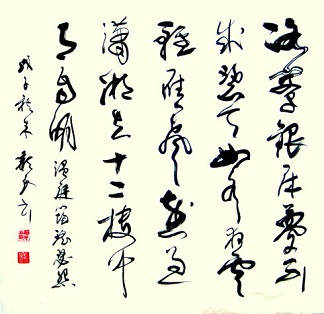 冰簟銀床夢不
成碧天如水夜雲
輕雁聲遠過
瀟湘去十二樓中
月自明 溫庭筠瑤瑟怨